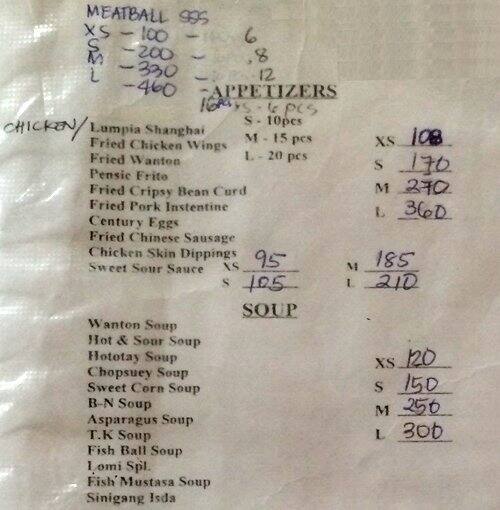 MEATBALL SSS
XS - 100 - 6
S - 200 - 8
M - 330 - 12
L - 460 - 16pcs
APPETIZERS
XS - 6 pcs
S - 10pcs
CHICKEN/ Lumpia Shanghai
Fried Chicken Wings M - 15 pcs XS 108
Fried Wanton L - 20 pcs S 170
Pensic Frito
Fried Cripsy Bean Curd M 270
Fried Pork Instentine L 360
Century Eggs
Fried Chinese Sausage
Chicken Skin Dippings
Sweet Sour Sauce XS 95 M 185
S 105 L 210
SOUP
Wanton Soup
Hot & Sour Soup
Hototay Soup XS 120
Chopsuey Soup
Sweet Corn Soup S 150
B-N Soup M 250
Asparagus Soup
T.K Soup L 300
Fish Ball Soup
Lomi Spl.
Fish Mustasa Soup
Sinigang Isda